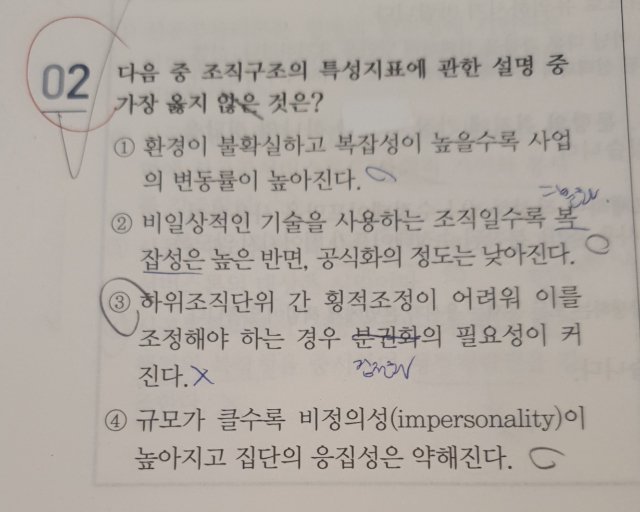 02
다음 중 조직구조의 특성지표에 관한 설명 중
가장 옳지 않은 것은?
① 환경이 불확실하고 복잡성이 높을수록 사업
의 변동률이 높아진다.
② 비일상적인 기술을 사용하는 조직일수록 복
잡성은 높은 반면, 공식화의 정도는 낮아진다.
③ 하위조직단위 간 횡적조정이 어려워 이를
조정해야 하는 경우 분권화의 필요성이 커
진다.
④ 규모가 클수록 비정의성(impersonality)이
높아지고 집단의 응집성은 약해진다.